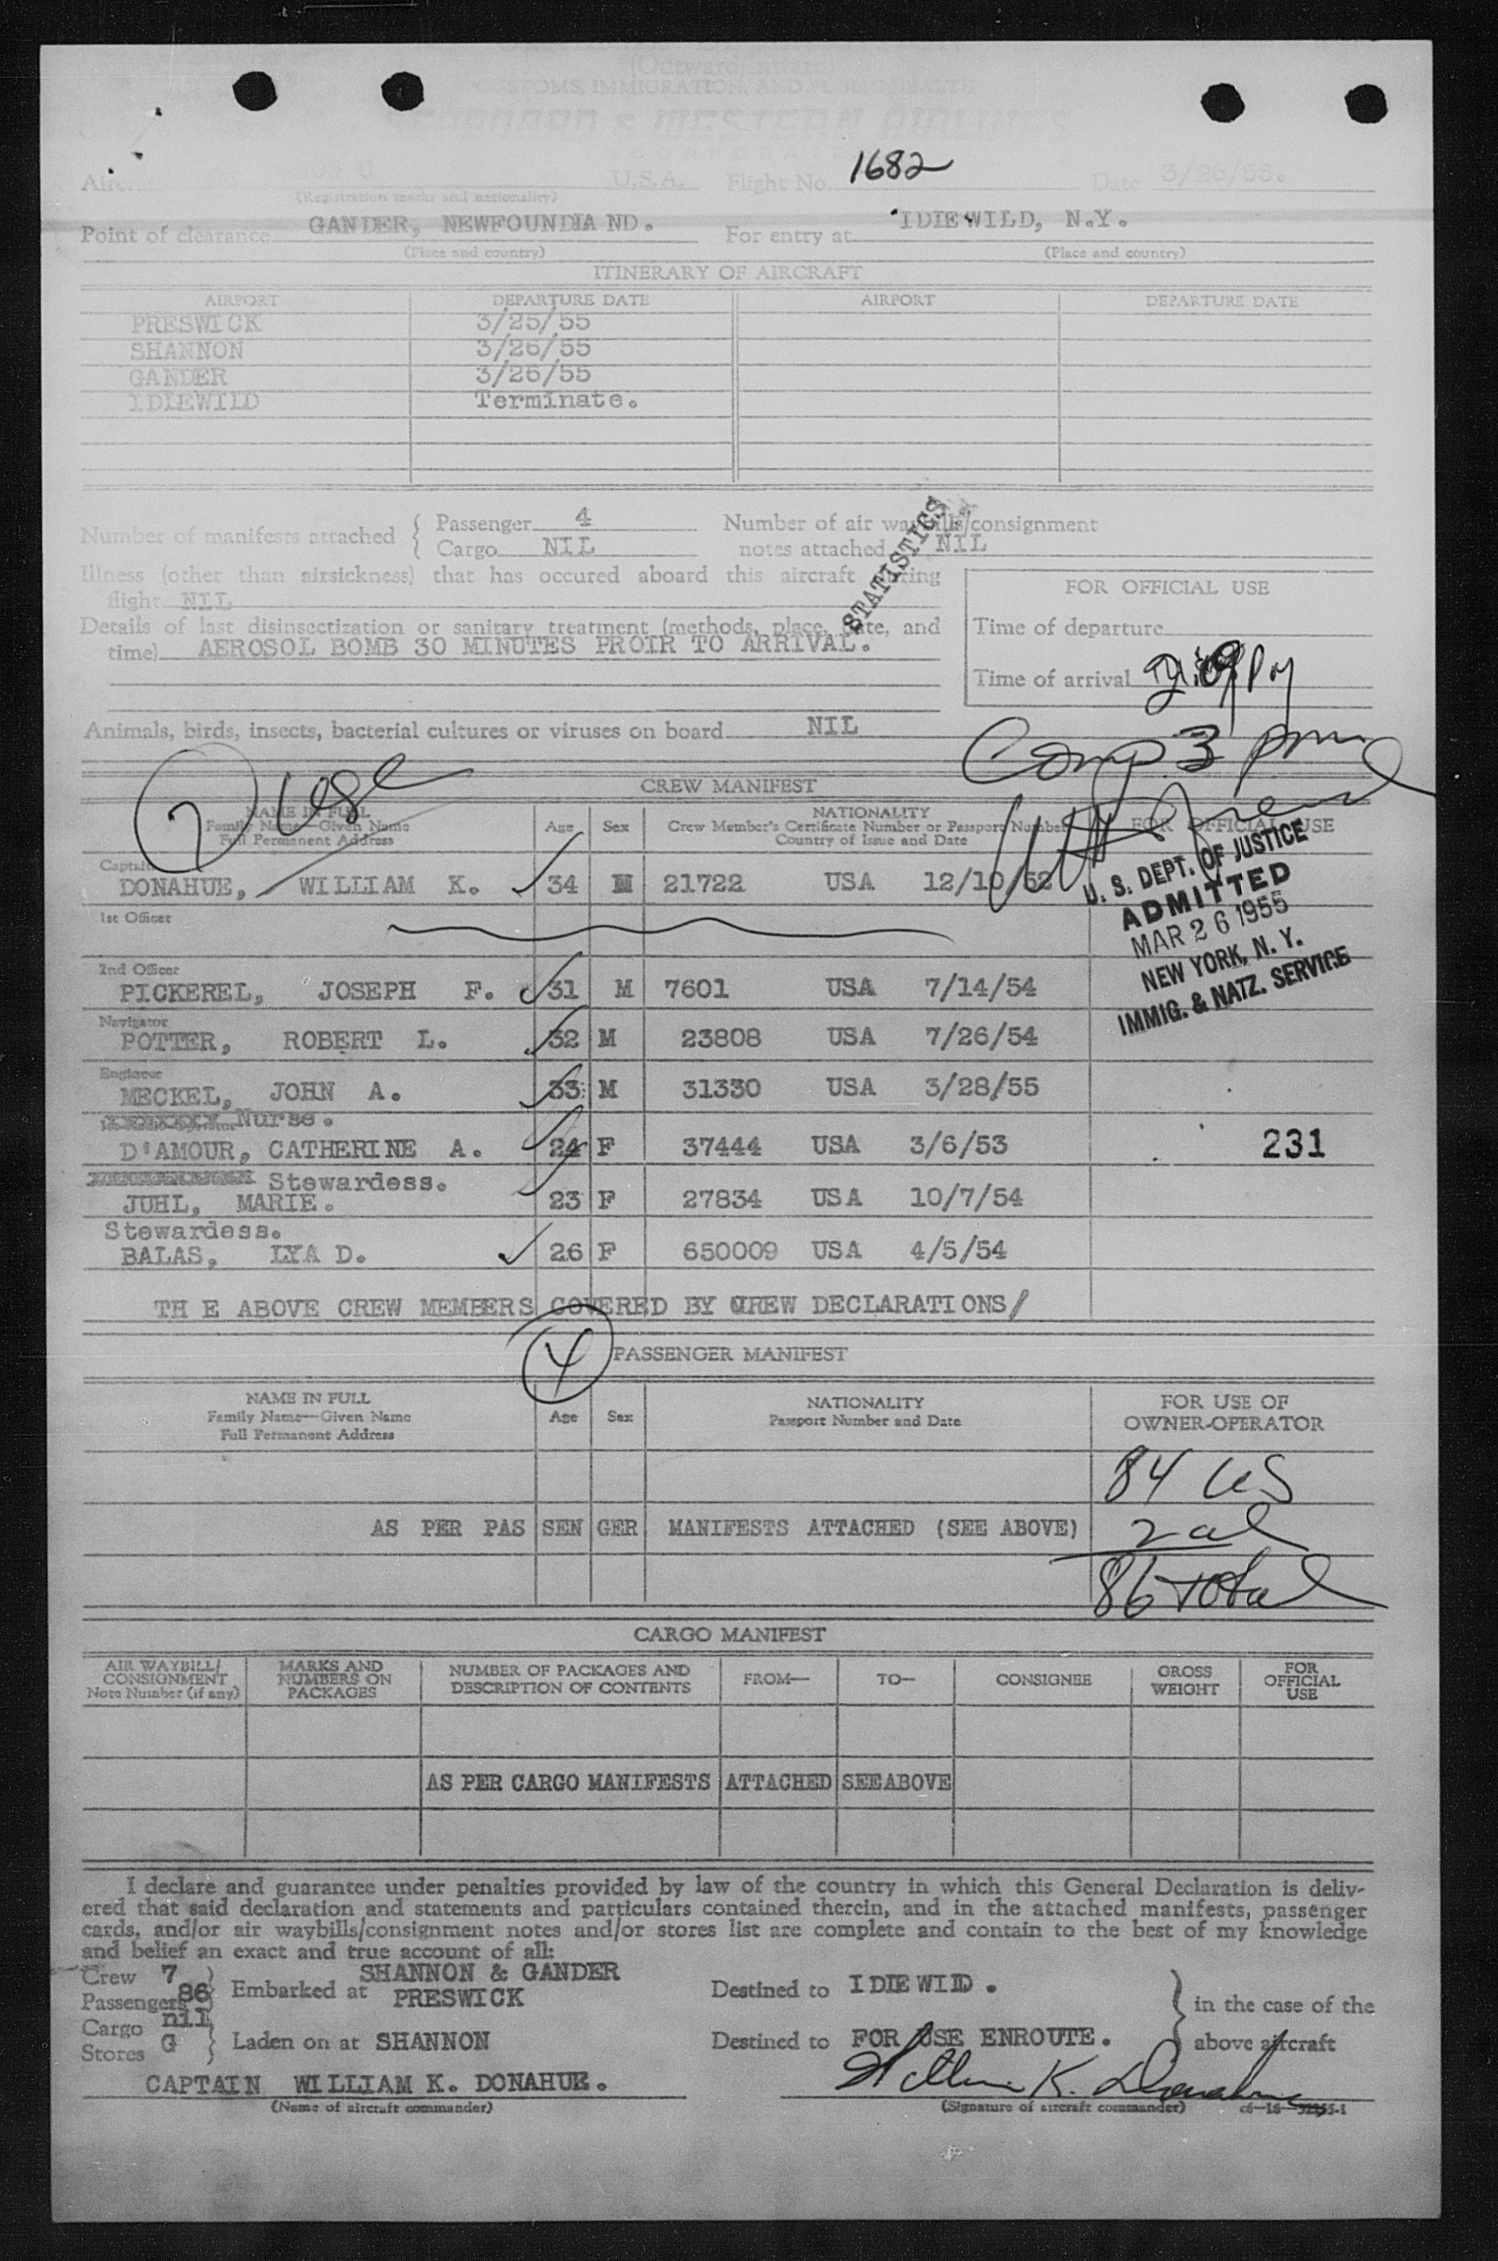 (Outward/Inward)
CUSTOMS, IMMIGRATION, AND PUBLIC HEALTH
SEABOARD & WESTERN AIRLINES
U.S.A. Flight No. 1682 Date 3/26/55.
(Registration marks and nationality)
Point of clearance GANDER, NEWFOUNDLA ND. For entry at IDLEWILD, N.Y.
(Place and country) (Place and country)
ITINERARY OF AIRCRAFT
AIRPORT DEPARTURE DATE AIRPORT DEPARTURE DATE
PRESWICK 3/25/55
SHANNON 3/26/55
GANDER 3/26/55
IDLEWILD Terminate.
STATISTICS
Number of manifests attached { Passenger 4 Number of air waybills/consignment
Cargo NIL notes attached NIL
Illness (other than airsickness) that has occured aboard this aircraft during
flight NIL
FOR OFFICIAL USE
Details of last disinsectization or sanitary treatment (methods, place, date, and Time of departure
time) AEROSOL BOMB 30 MINUTES PROIR TO ARRIVAL.
Time of arrival
Animals, birds, insects, bacterial cultures or viruses on board NIL
Comp 3 pm
7 use
CREW MANIFEST
NAME IN FULL Family Name—Given Name Full Permanent Address Age Sex NATIONALITY Crew Member's Certificate Number or Passport Number Country of Issue and Date FOR OFFICIAL USE
Captain
DONAHUE, WILLIAM K. 34 M 21722 USA 12/10/52
U. S. DEPT. OF JUSTICE
ADMITTED
MAR 26 1955
NEW YORK, N. Y.
IMMIG. & NATZ. SERVICE
1st Officer
2nd Officer
PICKEREL, JOSEPH F. 31 M 7601 USA 7/14/54
Navigator
POTTER, ROBERT L. 32 M 23808 USA 7/26/54
Engineer
MECKEL, JOHN A. 33 M 31330 USA 3/28/55
Nurse.
D'AMOUR, CATHERINE A. 24 F 37444 USA 3/6/53 231
Stewardess.
JUHL, MARIE. 23 F 27834 USA 10/7/54
Stewardess.
BALAS, LYA D. 26 F 650009 USA 4/5/54
TH E ABOVE CREW MEMBERS COVERED BY CREW DECLARATIONS/
4 PASSENGER MANIFEST
NAME IN FULL Family Name—Given Name Full Permanent Address Age Sex NATIONALITY Passport Number and Date FOR USE OF OWNER-OPERATOR
84 US
AS PER PAS SEN GER MANIFESTS ATTACHED (SEE ABOVE) 2 al
86 total
CARGO MANIFEST
AIR WAYBILL/ CONSIGNMENT Note Number (if any) MARKS AND NUMBERS ON PACKAGES NUMBER OF PACKAGES AND DESCRIPTION OF CONTENTS FROM— TO— CONSIGNEE GROSS WEIGHT FOR OFFICIAL USE
AS PER CARGO MANIFESTS ATTACHED SEE ABOVE
I declare and guarantee under penalties provided by law of the country in which this General Declaration is deliv-
ered that said declaration and statements and particulars contained therein, and in the attached manifests, passenger
cards, and/or air waybills/consignment notes and/or stores list are complete and contain to the best of my knowledge
and belief an exact and true account of all:
Crew 7
Passengers 86 } Embarked at SHANNON & GANDER PRESWICK Destined to IDLEWILD. } in the case of the
Cargo nil
Stores G } Laden on at SHANNON Destined to FOR USE ENROUTE. above aircraft
CAPTAIN WILLIAM K. DONAHUE. William K. Donahue
(Name of aircraft commander) (Signature of aircraft commander)